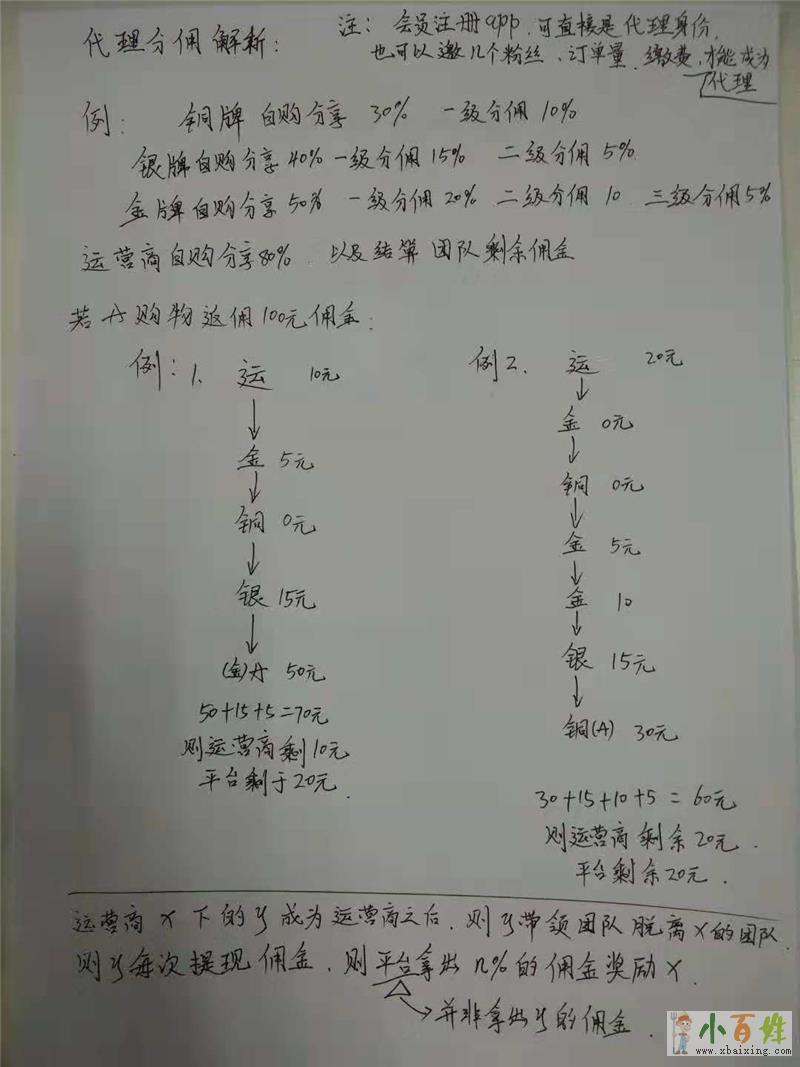 代理分佣解析:
注: 会员注册app,可直接是代理身份,
也可以邀几个粉丝、订单量、缴费,才能成为
代理
例: 铜牌 自购分享 30% 一级分佣 10%
银牌自购分享40% 一级分佣 15% 二级分佣 5%
金牌自购分享50% 一级分佣 20% 二级分佣 10 三级分佣5%
运营商自购分享80% 以及结算团队剩余佣金
若A购物返佣100元佣金:
例: 1、 运 10元
金 5元
铜 0元
银 15元
(金)A 50元
50+15+5=70元
则运营商剩10元
平台剩于20元.
例2、 运 20元
金 0元
铜 0元
金 5元
金 10
银 15元
铜(A) 30元
30+15+10+5=60元
则运营商剩余20元.
平台剩余20元.
运营商X下的Y成为运营商之后,则Y带领团队脱离X的团队.
则Y每次提现佣金,则平台拿出n%的佣金奖励X.
并非拿出Y的佣金.
小百姓
www.xbaixing.com